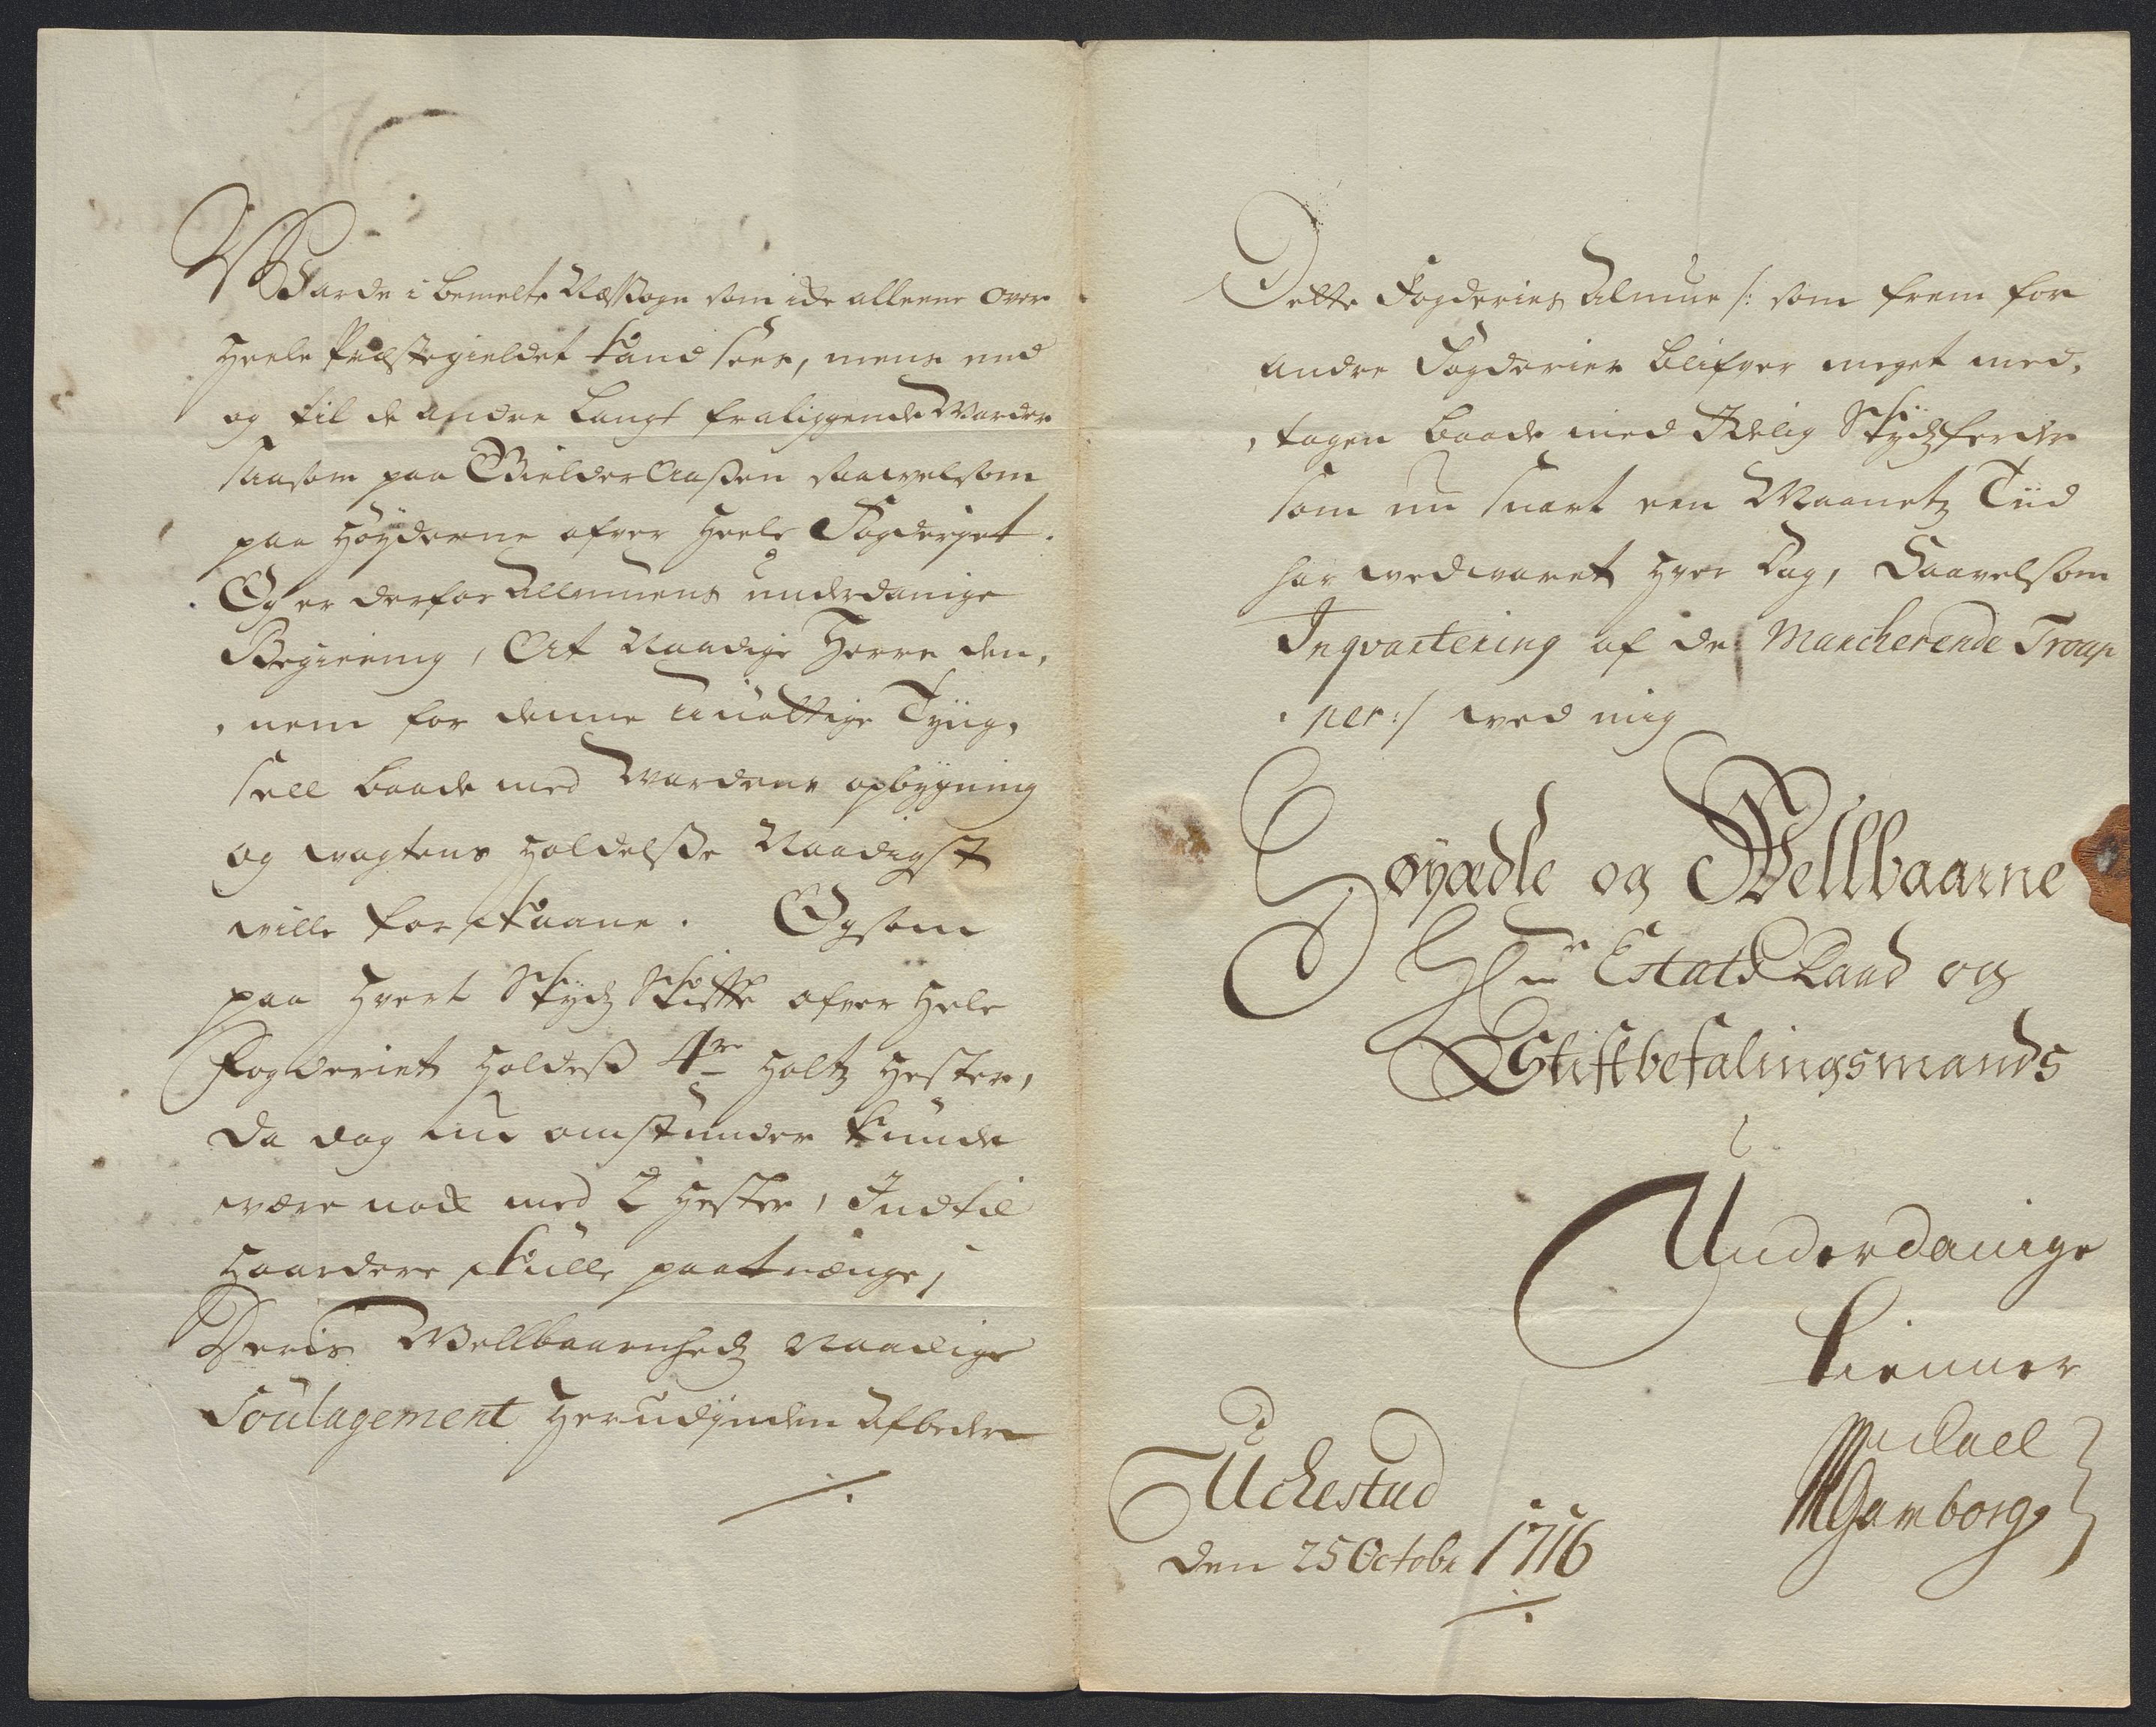 Warde i bemelte Næssogn som icke alleene over
Heele Præstegieldet kand sees, mens end
og til de andre langt fraliggende Warder
saasom paa Gielderaassen saavelsom
paa Høyderne ofver Heele Fogderiet.
Og er derfor Allmuens underdanige
Begiering, At Naadige Herre den,
,nem for denne unøttige Tyng,
sell baade med Wardens opbygning
og wagtens Holdelsse Naadigst
wille forskaane. Og som
paa Hvert Skydz Skiffte ofver Hele
Fogderiet Holdess 4re Holtz Hester,
da dog nu omstunder kunde
være nock med 2 Hester, Indtil
Haardere skulle paatrænge,
Deris Wellbaarenhedz Naadige
Soulagement Herudjnden Afbeder
Dette Fogderies Almue /: som frem for
andre Fogderier blifver meget med,
,tagen baade med Idelig Skydzferder
som nu snart een Maanetz Tiid
har wedvaret Hver Dag, Saavelsom
Inqvartering af de Marcherende Troup
,per :/ wed mig
Høyædle og Wellbaarne
Hr Estatz Raad og
Stiftbefalingsmands
Underdanige
tienner
Michael
Gamborg
Uchestad
den 25 Octobr 1716